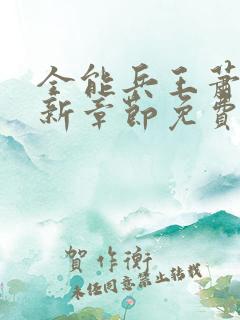 全能兵王萧
新章节免费
贺作衡
未经同意禁止转载